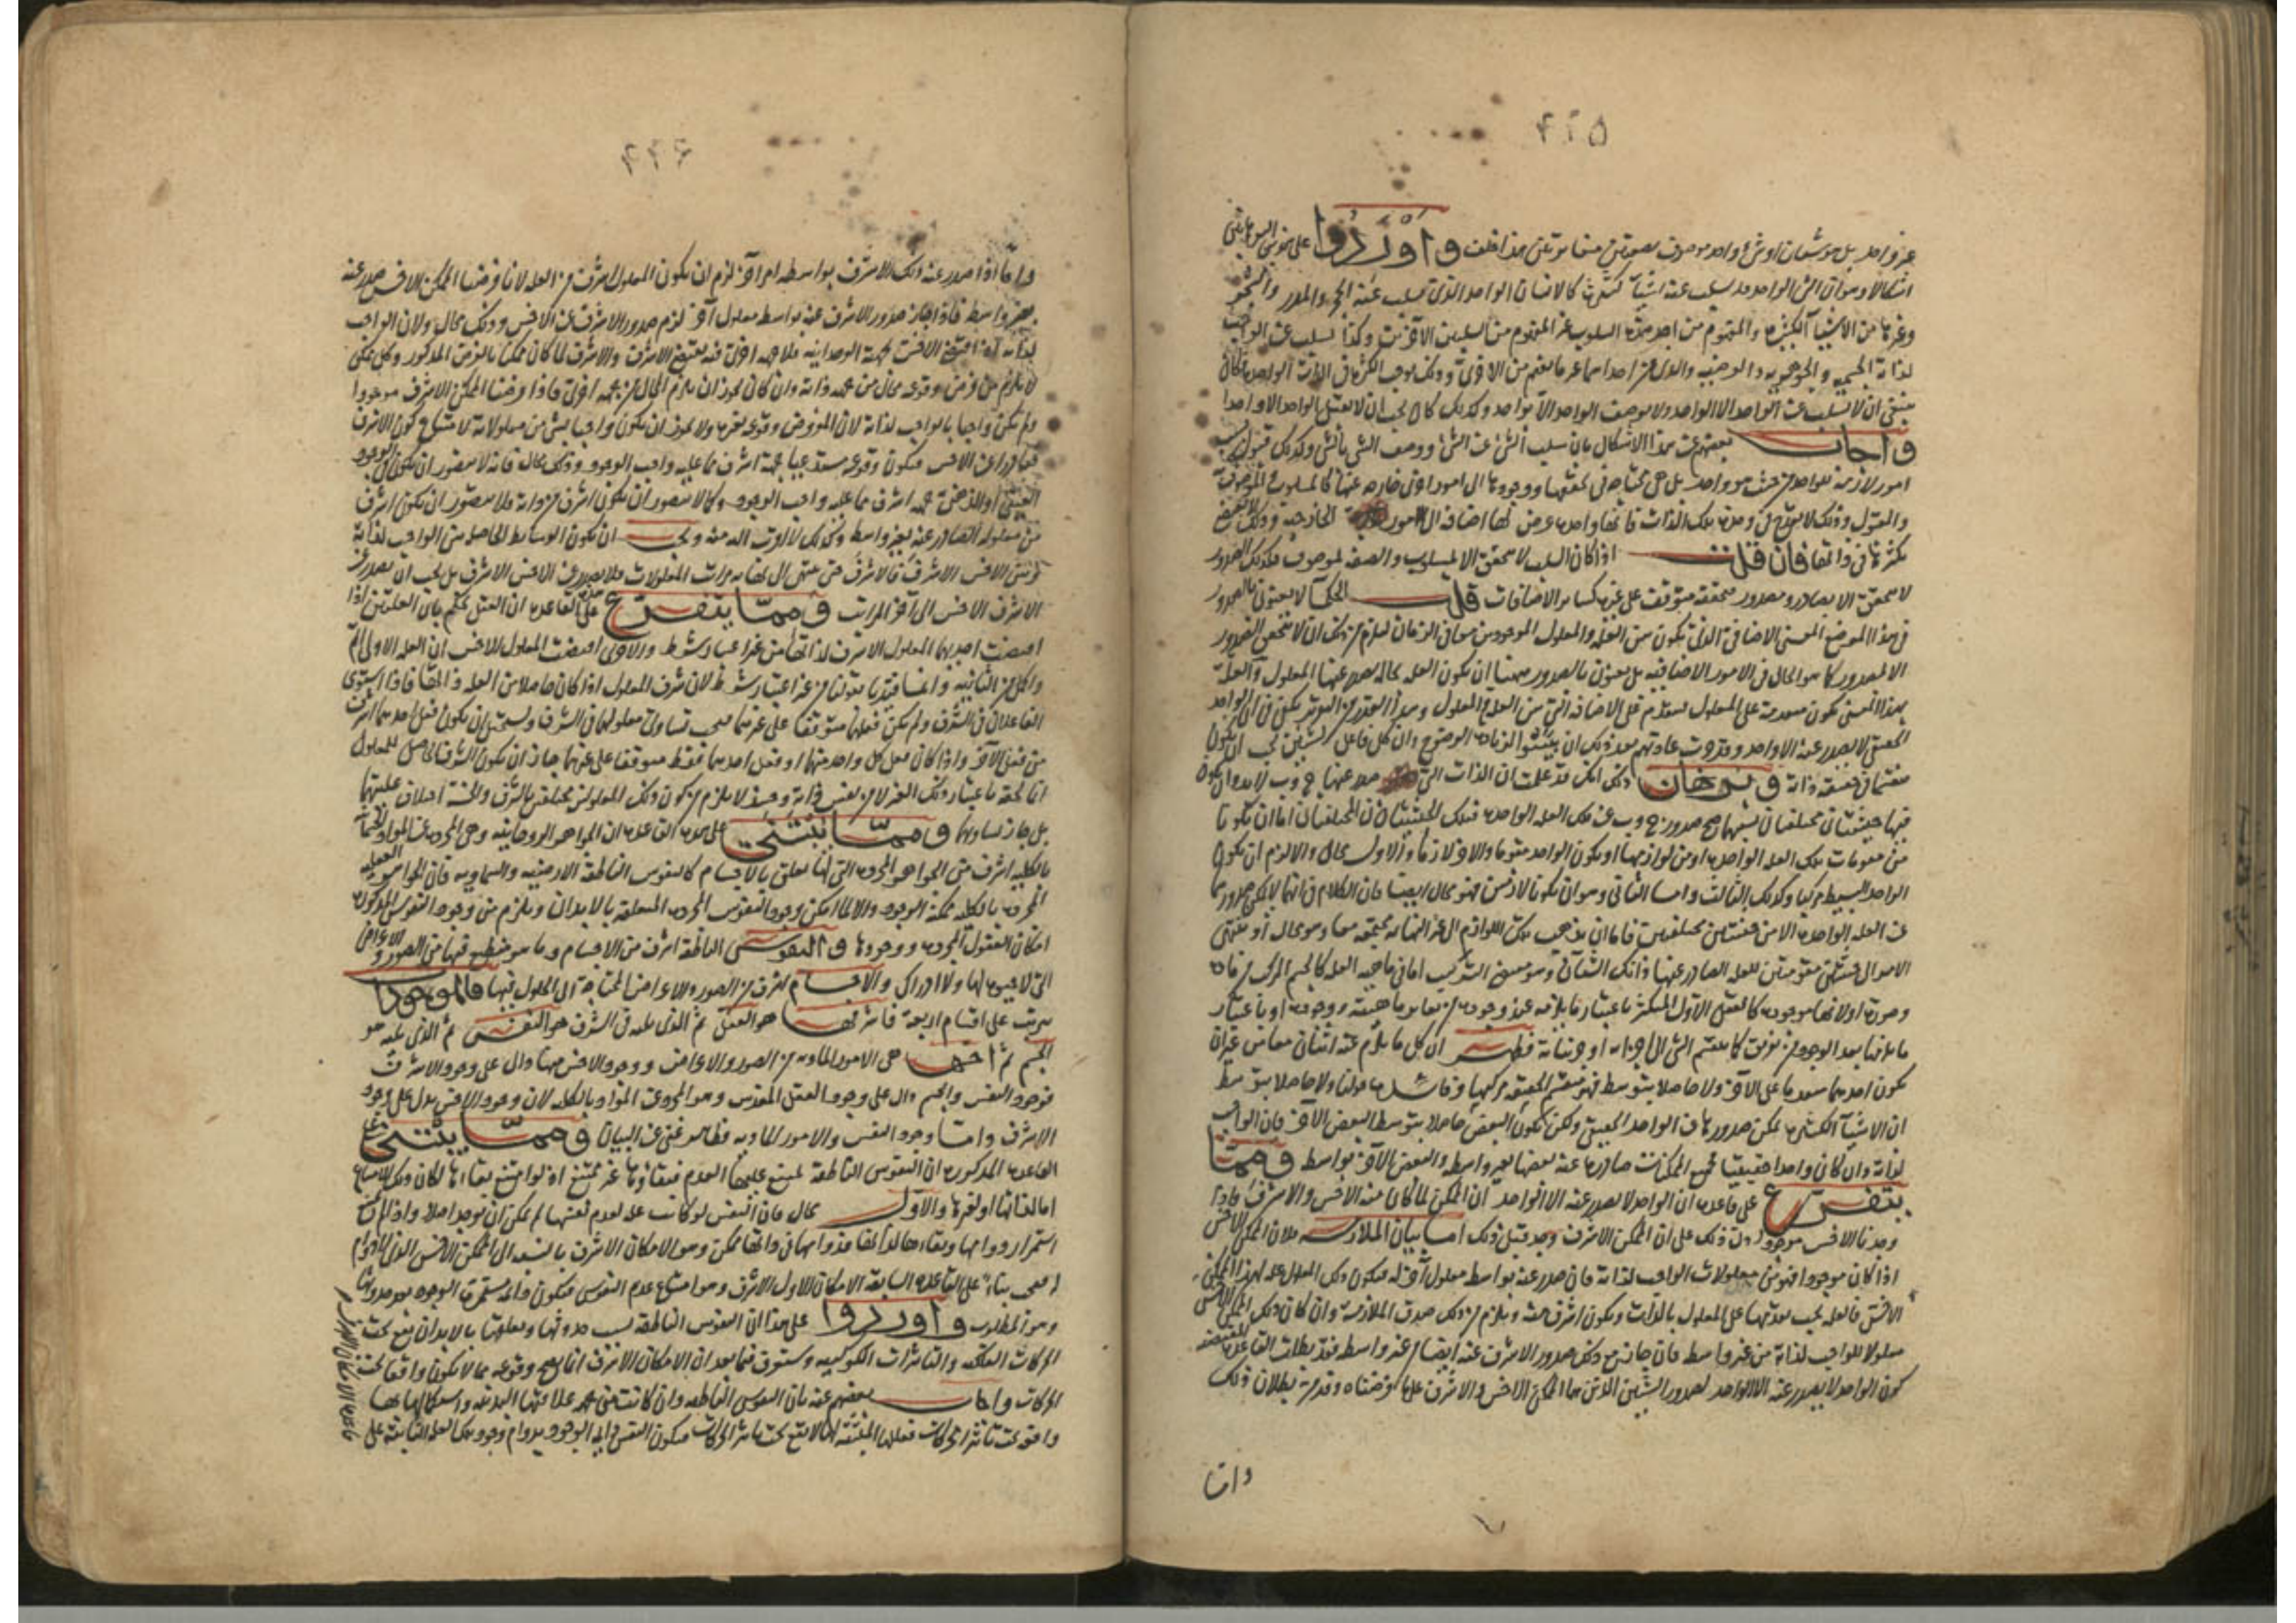 ٤٢٥
غير واحد بل هو شيئان او شيء واحد موصوف بصفتين متغايرتين هذا خلف واوردوا على
اشكالا وهو ان الشئ الواحد قد يسلب عنه اشياء كثيرة كالانسان الواحد الذى يسلب عنه الحجر والمدر والشجر
وغيرها من الاشياء الكثيرة والمفهوم من احد هذه السلوب غير المفهوم من السلبين الآخرين وكذا يسلب عن الواجب
لذاته الجسمية والجوهرية والعرضية وذلك يوجب الكثرة فى الذات الواحدة فكان
ينبغى ان لا يسلب عن الواحد الا الواحد ولا يوصف الواحد الا بواحد وكذلك كان يجب ان لا يقبل الواحد الا واحدا
واجاب بعضهم عن هذا الاشكال بان سلب الشئ عن الشئ ووصف الشئ بالشئ وكذلك قبول
امور لازمة للواحد من حيث هو واحد بل هى محتاجة فى تحققها ووجودها الى امور اخرى خارجة عنها كالمسلوب والموصوف
والمقبول وذلك لا يقدح فى وحدة تلك الذات فانها واحدة عرض لها اضافة الى الامور الخارجية وذلك لا يقتضى
تكثرها فى ذاتها فان قلت اذا كان السلب لا يتحقق الا بمسلوب والصفة لموصوف فكذلك الصدور
لا يتحقق الا بصادر ومصدور فتحققه متوقف على غيره كسائر الاضافات قلت الحكماء لا يعنون بالصدور
فى هذا الموضع المعنى الاضافى الذى يكون بين العلة والمعلول الموجودين معا فى الزمان ليلزم من ذلك ان لا يتحقق الصدور
الا لمصدور كما هو الحال فى الامور الاضافية بل يعنون بالصدور ههنا ان يكون العلة بحالة يصدر عنها المعلول والعلة
بهذا المعنى يكون متقدمة على المعلول ليتقدم على الاضافة التى بين العلة والمعلول وهذا القدر من التقرير يكفى فى ان الواحد
الحقيقى لا يصدر عنه الا واحد وقد جرت عادتهم بعد ذلك ان يثبتوا لزيادة الوضوح وان كل فاعل لشيئين يجب ان يكون
منقسما فى حقيقة ذاته وبرهان ذلك انك قد علمت ان الذات التى صدر عنها ج وب لا بد وان يكون
فيها حيثيتان مختلفتان
من مقومات تلك العلة الواحدة او من لوازمها او يكون الواحد مقوما والآخر لازما والاول محال والا لزم ان يكون
الواحد البسيط مركبا وكذلك الثالث واما الثانى وهو ان يكونا لازمين فهو محال ايضا فان الكلام فى انهما لا يمكن صدورهما
عن العلة الواحدة الا من حيثيتين مختلفتين فاما ان يذهب تلك اللوازم الى غير النهاية مجتمعة معا وهو محال او ينتهى
وصورة اولا بها موجودة كالعقل الاول المتكثر باعتبار ما يلزمه عند وجوده من تغاير ماهيته ووجوده او باعتبار
فظهر ان كل ما يلزم عنه اثنان معا من غير ان
يكون احدهما متقدما على الآخر ولا حاصلا بتوسطه فهو منقسم الحقيقة مركبها
ان الاشياء الكثيرة يمكن صدورها عن الواحد الحقيقى ولكن يكون البعض حاصلا بتوسط البعض الآخر فان الواجب
لذاته وان كان واحدا حقيقيا فجميع الممكنات صادرة عنه بعضها بغير واسطة والبعض الآخر بواسطة ومما
يتفرع على قاعدة ان الواحد لا يصدر عنه الا الواحد ان الممكن لما كان منه الاخس والاشرف فاذا
وجدنا الاخس موجودا دل ذلك على ان الممكن الاشرف وجد قبل ذلك اما بيان الملازمة فلان الممكن الاخس
اذا كان موجودا فهو من معلولات الواجب لذاته فان صدر عنه بواسطة معلول آخر له فيكون ذلك المعلول علة لهذا الممكن
الاخس فالعلة يجب تقدمها على المعلول بالذات ويكون اشرف منه ويلزم من ذلك صدق الملازمة وان كان ذلك الممكن الاخس
معلولا للواجب لذاته من غير واسطة فان جاز مع ذلك صدور الاشرف عنه ايضا من غير واسطة فقد بطلت القاعدة المقتضية
كون الواحد لا يصدر عنه الا الواحد لصدور الشيئين الذين هما الممكن الاخس والاشرف على ما فرضناه وقد مر بطلان ذلك
واما
٤٢٦
واما اذا صدر عنه ذلك الاشرف بواسطة امر آخر لزم ان يكون المعلول اشرف من العلة لانا فرضنا الممكن الاخس صدر عنه
بغير واسطة فاذا جاز صدور الاشرف عنه بواسطة معلول آخر لزم صدور الاشرف عن الاخس وذلك محال ولان الواجب
لذاته اذا اقتضى الاخس بجهة الوحدانية فلا جهة اخرى فيه يقتضى الاشرف والاشرف لما كان ممكنا بالفرض المذكور وكل ممكن
لا يلزم من فرض وقوعه محال من جهة ذاته وان كان يجوز ان يلزم المحال من جهة اخرى فاذا فرضنا الممكن الاشرف موجودا
ولم يكن واجبا بالواجب لذاته لان المفروض وقوعه بغيره ولا يجوز ان يكون واجبا بشئ من معلولاته لامتناع كون الاشرف
صادرا عن الاخس فيكون وقوعه مستدعيا بجهة اشرف مما عليه واجب الوجود وذلك محال فانه لا يتصور ان يكون فى الوجود
العينى او الذهنى جهة اشرف مما عليه واجب الوجود وكما لا يتصور ان يكون اشرف من ذاته فلا يتصور ان يكون اشرف
من معلوله الصادر عنه بغير واسطة وكذلك الاقرب اليه منه ويجب ان يكون الوسائط الحاصلة بين الواجب لذاته
وبين الاخس الاشرف فالاشرف حتى ينتهى الى نهاية مراتب المعلولات فلا يصدر عن الاخس الاشرف بل يجب ان يصدر عن
الاشرف الاخس الى آخر المراتب ومما يتفرع على هذه القاعدة ان العقل يحكم بان العلتين اذا
اقتضت احديهما المعلول الاشرف لذاتها من غير اعتبار شرط والاخرى اقتضت المعلول الاخس ان العلة الاولى اتم
واكمل من الثانية وانما قيدنا بقولنا من غير اعتبار شرط لان شرف المعلول اذا كان حاصلا من العلة لذاتها فاذا استوى
الفاعلان فى الشرف ولم يكن فعلهما متوقفا على غيرهما فيجب تساوى معلولهما فى الشرف ويستحيل ان يكون فعل احدهما اشرف
من فعل الآخر واذا كان فعل كل واحد منهما او فعل احدهما فقط متوقفا على غيرهما جاز ان يكون الشرف الحاصل للمعلول
بل جاز تساويهما ومما يبتنى على هذه القاعدة ان الجواهر الروحانية وهى المجردة عن المواد الجسمانية
بالكلية اشرف من الجواهر المجردة التى لها تعلق بالاجسام كالنفوس الناطقة الارضية والسماوية فان الجواهر العقلية
المجردة بالكلية ممكنة الوجود والا لما امكن وجود النفوس المجردة المتعلقة بالابدان ويلزم من وجود النفوس المذكورة
امكان العقول المجردة ووجودها والنفوس الناطقة اشرف من الاجسام وما هو منطبع فيها من الصور والاعراض
التى لا حيوة لها ولا ادراك والاجسام اشرف من الصور والاعراض المحتاجة الى الحلول فيها فالموجودات
يترتب على اقسام اربعة فاشرفها هو العقل ثم الذى يليه فى الشرف هو النفس ثم الذى يليه هو
الجسم ثم اخسها هى الامور المادية من الصور والاعراض ووجود الاخس منها دال على وجود الاشرف
فوجود النفس والجسم دال على وجود العقل المقدس وهو المجرد عن المواد بالكلية لان وجود الاخس يدل على وجود
الاشرف واما وجود النفس والامور المادية فظاهر غنى عن البيان ومما يبتنى على
القاعدة المذكورة ان النفوس الناطقة يمتنع عليها العدم فبقاؤها غير ممتنع اذ لو امتنع بقاءها لكان ذلك الامتناع
اما لذاتها او لغيرها والاول محال فان النفس لو كانت علة لعدم نفسها لم يمكن ان يوجد اصلا واذا لم يمتنع
استمرار دوامها وبقاءها لذاتها فدوامها فى ذاتها ممكن وهو الامكان الاشرف بالنسبة الى الممكن الاخس الذى
فيجب بناء على القاعدة السابقة الامكان الاول الاشرف وهو امتناع عدم النفوس فيكون دائمة مستمرة الوجود بعد حدوثها
وهو المطلوب واوردوا على هذا ان النفوس الناطقة بسبب حدوثها وتعلقها بالابدان يقع تحت
الحركات الفلكية والتاثيرات الكوكبية وستعرف فيما بعد ان الامكان الاشرف انما يصح وقوعه مما لا يكون واقعا تحت
الحركات واجاب بعضهم عنه بان النفوس الناطقة وان كانت من جهة علاقتها البدنية واستكمالها بها
واقعة تحت تاثير الحركات فعللها المثبتة لها لا يقع تحت تاثير الحركات فيكون النفس دايمة الوجود بدوام وجود تلك العلة الثابتة على